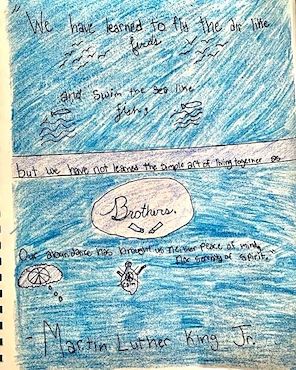 "We have learned to fly the air like
birds
and swim the sea like
fish,
but we have not learned the simple act of living together as
Brothers.
Our abundance has brought us neither peace of mind,
nor serenity of spirit."
- Martin Luther King Jr.